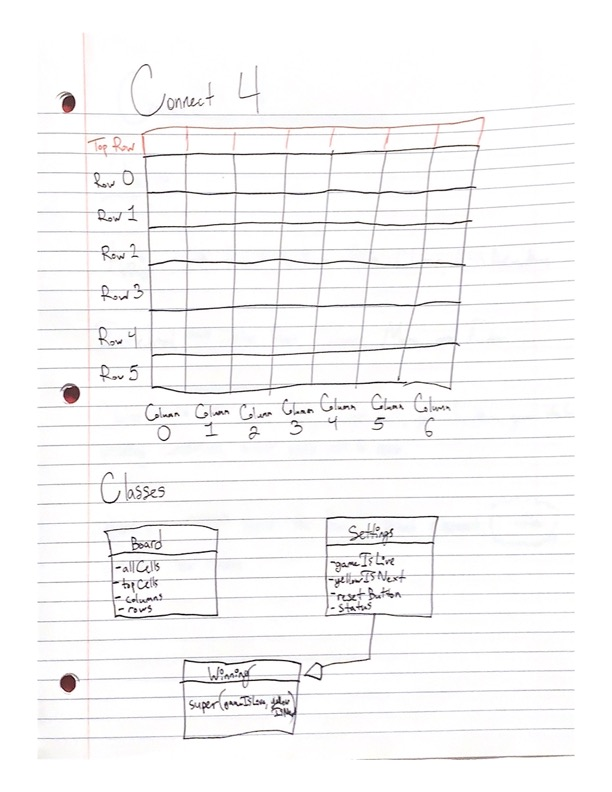 Connect 4
Top Row
Row 0
Row 1
Row 2
Row 3
Row 4
Row 5
Column 0
Column 1
Column 2
Column 3
Column 4
Column 5
Column 6
Classes
Board
-allCells
-topCells
-columns
-rows
Settings
-gameIsLive
-yellowIsNext
-resetButton
-status
Winning
super(gameIsLive, yellow
IsNext)